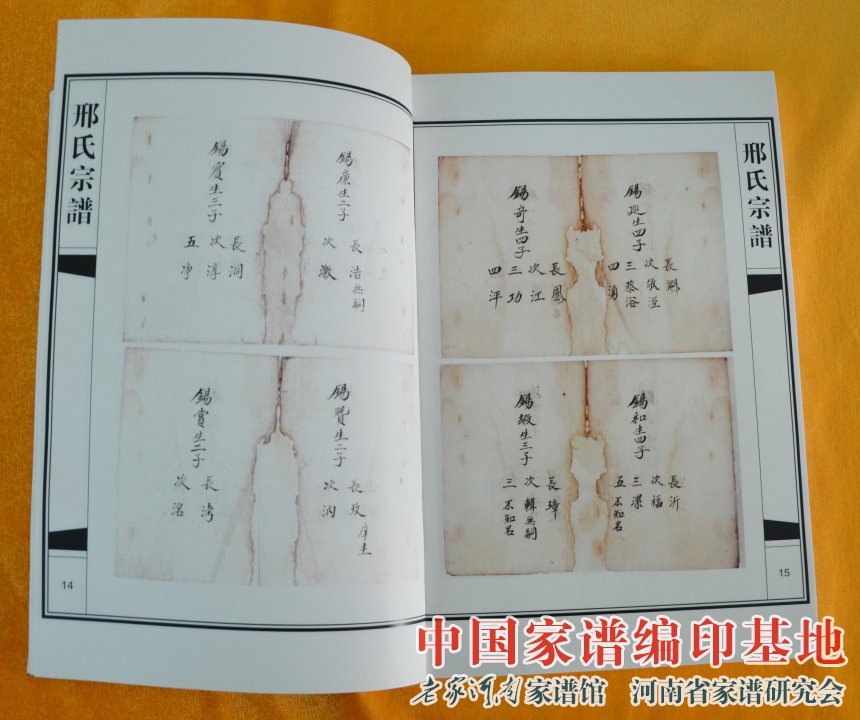 邢氏宗譜
錫廣生二子
長浩無嗣
次激
錫賓生三子
長澗
次淳
五净
錫贊生二子
長玫庠生
次汭
錫賞生二子
長涍
次洺
14
邢氏宗譜
生四子
長
次激涇
三恭浴
四湧
錫奇生四子
長鳳
次江
三功
四泙
錫和生四子
長沂
次福
三潔
五不知名
生三子
長璋
次輯無嗣
三不知名
15
中国家谱编印基地
老家河南家谱馆 河南省家谱研究会